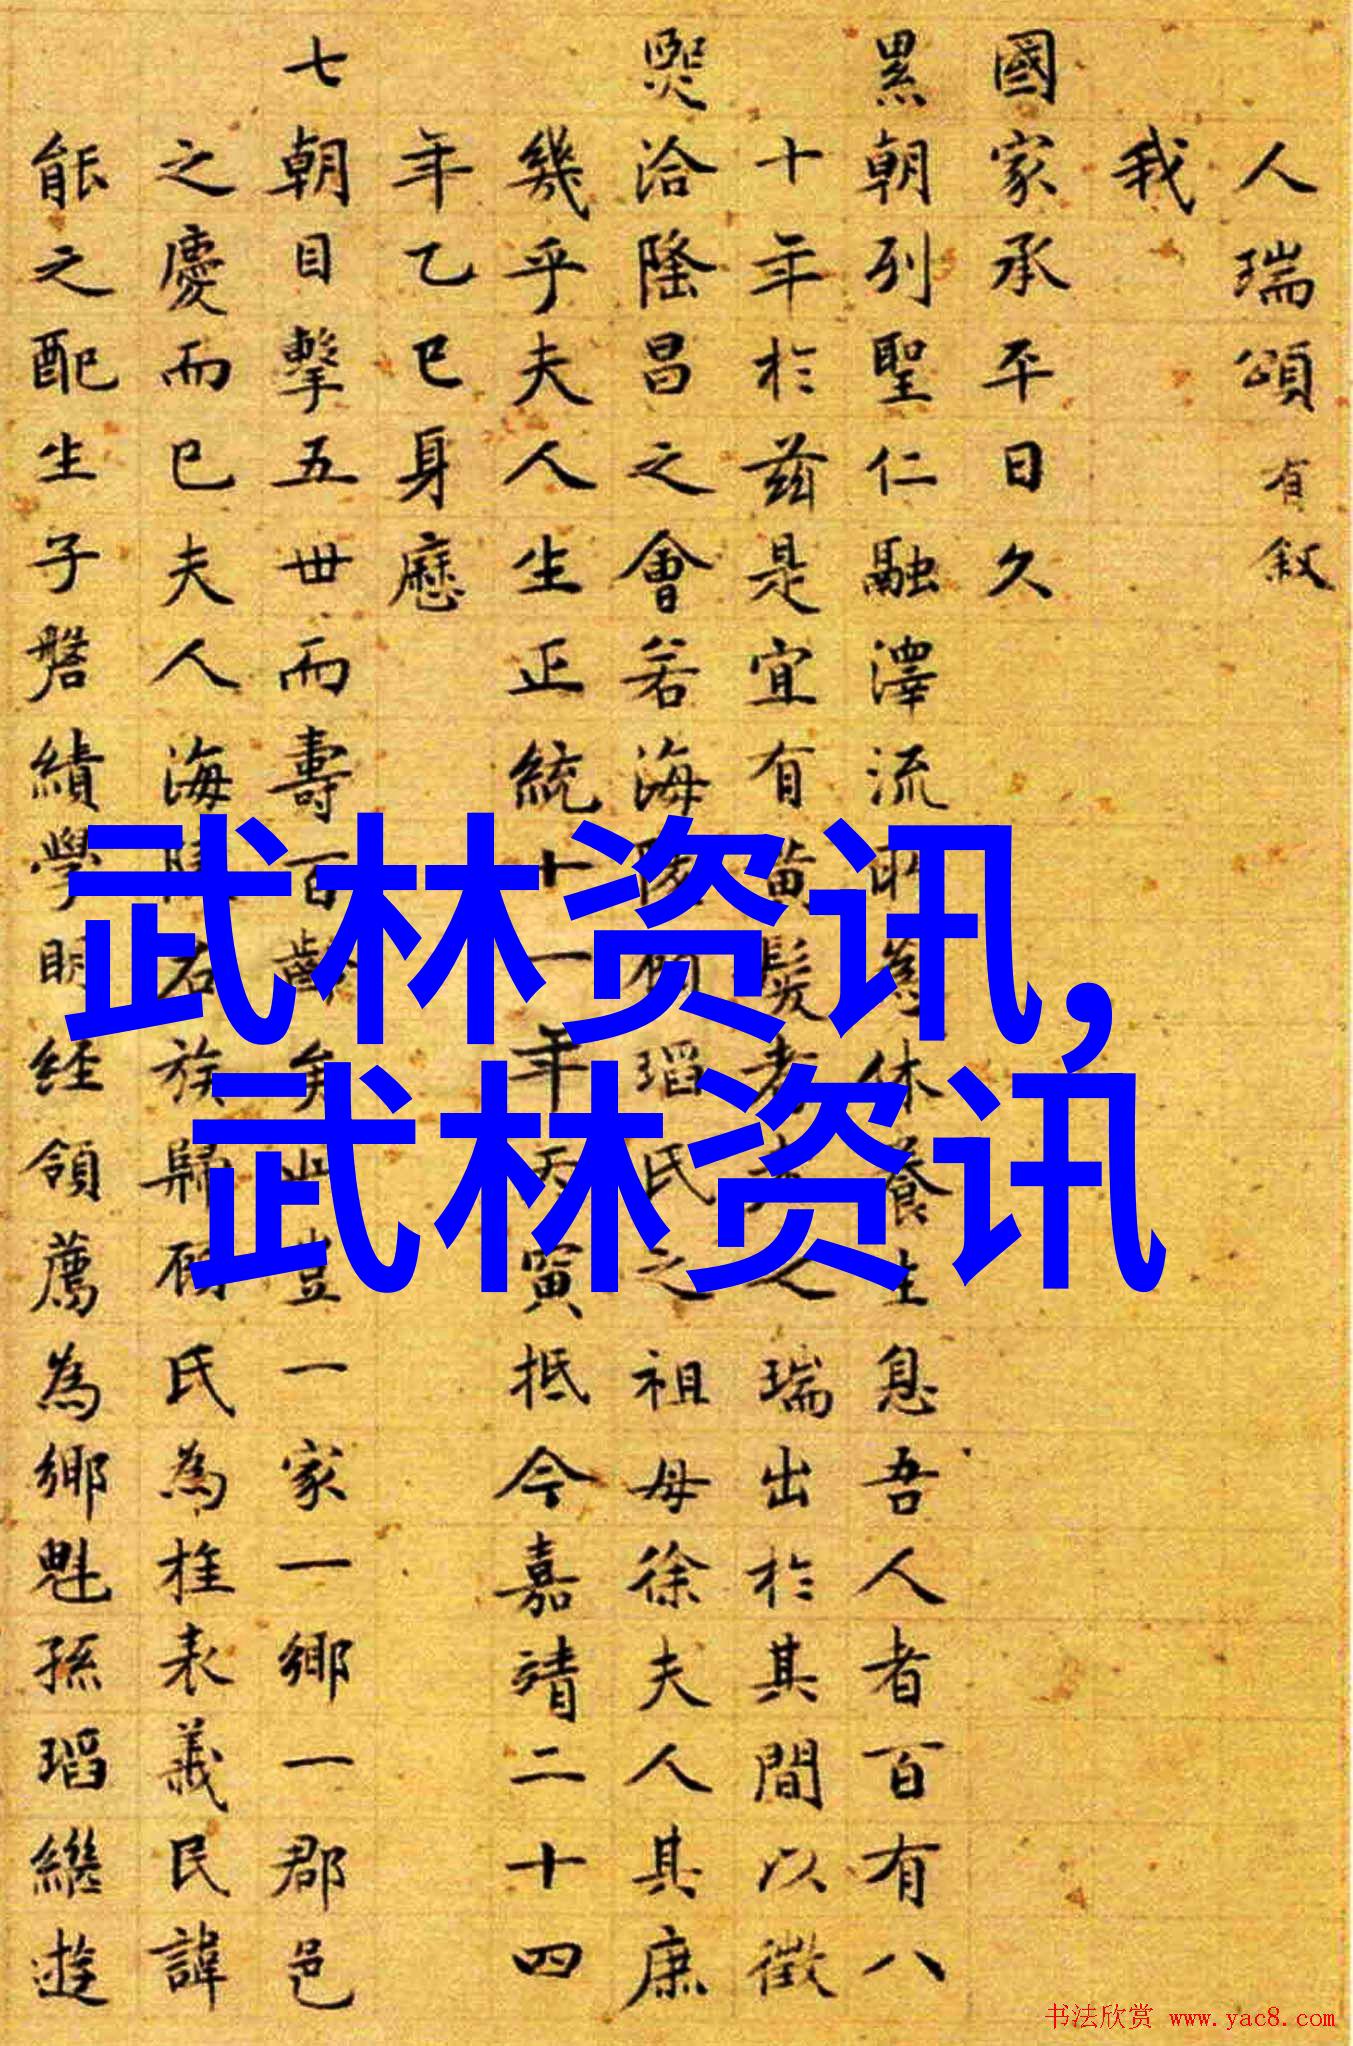 人瑞頌有叙
我
國家承平日久
累朝列聖仁融澤流 休養生息吾人者百有八
十年於兹是宜有黄髮 瑞出於其間以徵
熙洽隆昌之會若海 瑫氏之祖母徐夫人其庶
幾乎夫人生正統十一年 寅抵今嘉靖二十四
年乙巳身歷
七朝目擊五世而壽百齡矣 豈一家一鄉一郡邑
之慶而已夫人海 名族歸顧氏為推表義民諱
能之配生子磐績學明經領薦為鄉魁孫瑫繼遊
武林资讯,
武林资讯
书法欣赏 www.yac8.com